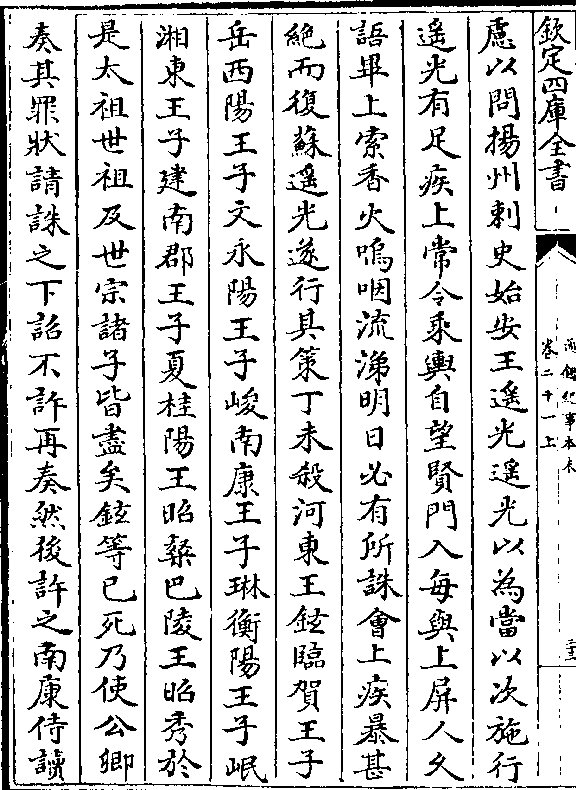 欽定四庫全書
通鑑紀事本末
卷二十一上
慮以問揚州刺史始安王遥光遥光以為當以次施行
遥光有足疾上常令乘輿自望賢門入每與上屏人久
語畢上索香火嗚咽流涕明日必有所誅會上疾暴甚
絶而復蘇遥光遂行其策丁未殺河東王鉉臨賀王子
岳西陽王子文永陽王子峻南康王子琳衡陽王子岷
湘東王子建南郡王子夏桂陽王昭粲巴陵王昭秀於
是太祖世祖及世宗諸子皆盡矣鉉等已死乃使公卿
奏其罪狀請誅之下詔不許再奏然後許之南康侍讀